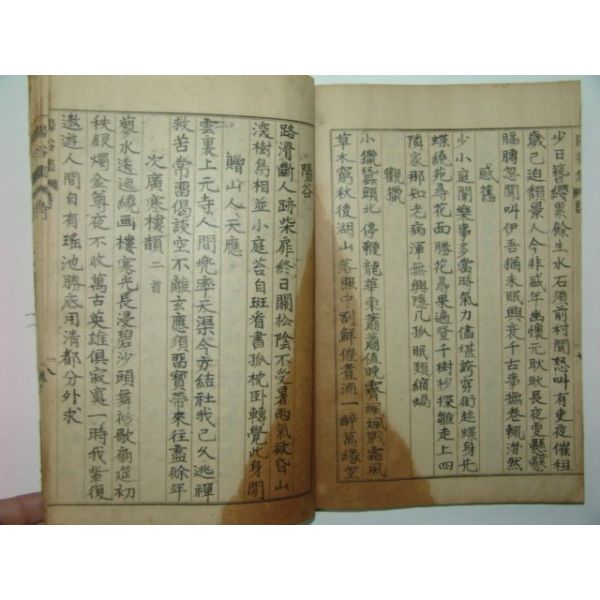 少日簪纓累餘生水石須前村聞怒叫有吏夜催租
歲已迫頹景人今非盛年幽懷元耿耿長夜更懸懸
腷膊忽聞叫伊吾猶未眠興衰千古事撫卷輒潸然
感舊
少小庭闈樂事多當時氣力儘堪誇穿街趁蝶身先
蝶繞苑尋花面勝花尋果遍登千樹杪探雛走上四
隣家那知老病渾無興隱几孤眠類縮蝸
觀獵
小獵蠶頭北停鞭龍華東蕭蕭値晩霽颯颯戰霜風
草木窮秋後湖山落照中割鮮催煮酒一醉萬緣空
陽谷
路滑斷人跡柴扉終日關松陰不受暑雨氣欲昏山
淡樹鳥相並小庭苔自斑看書孤枕卧轉覺此身閒
贈山人天應
雲裏上元寺人間兜率天渠今方結社我已久逃禪
救苦常留偈談空不離玄應須留寶帶來往盡餘年
次廣寒樓韻 二首
蓼水透迤繞画樓寒光長浸碧沙頭舞衫歌扇筵初
秩銀燭金尊夜不收萬古英雄俱寂寞一時我輩復
遨遊人間自有瑤池勝底用淸都分外求